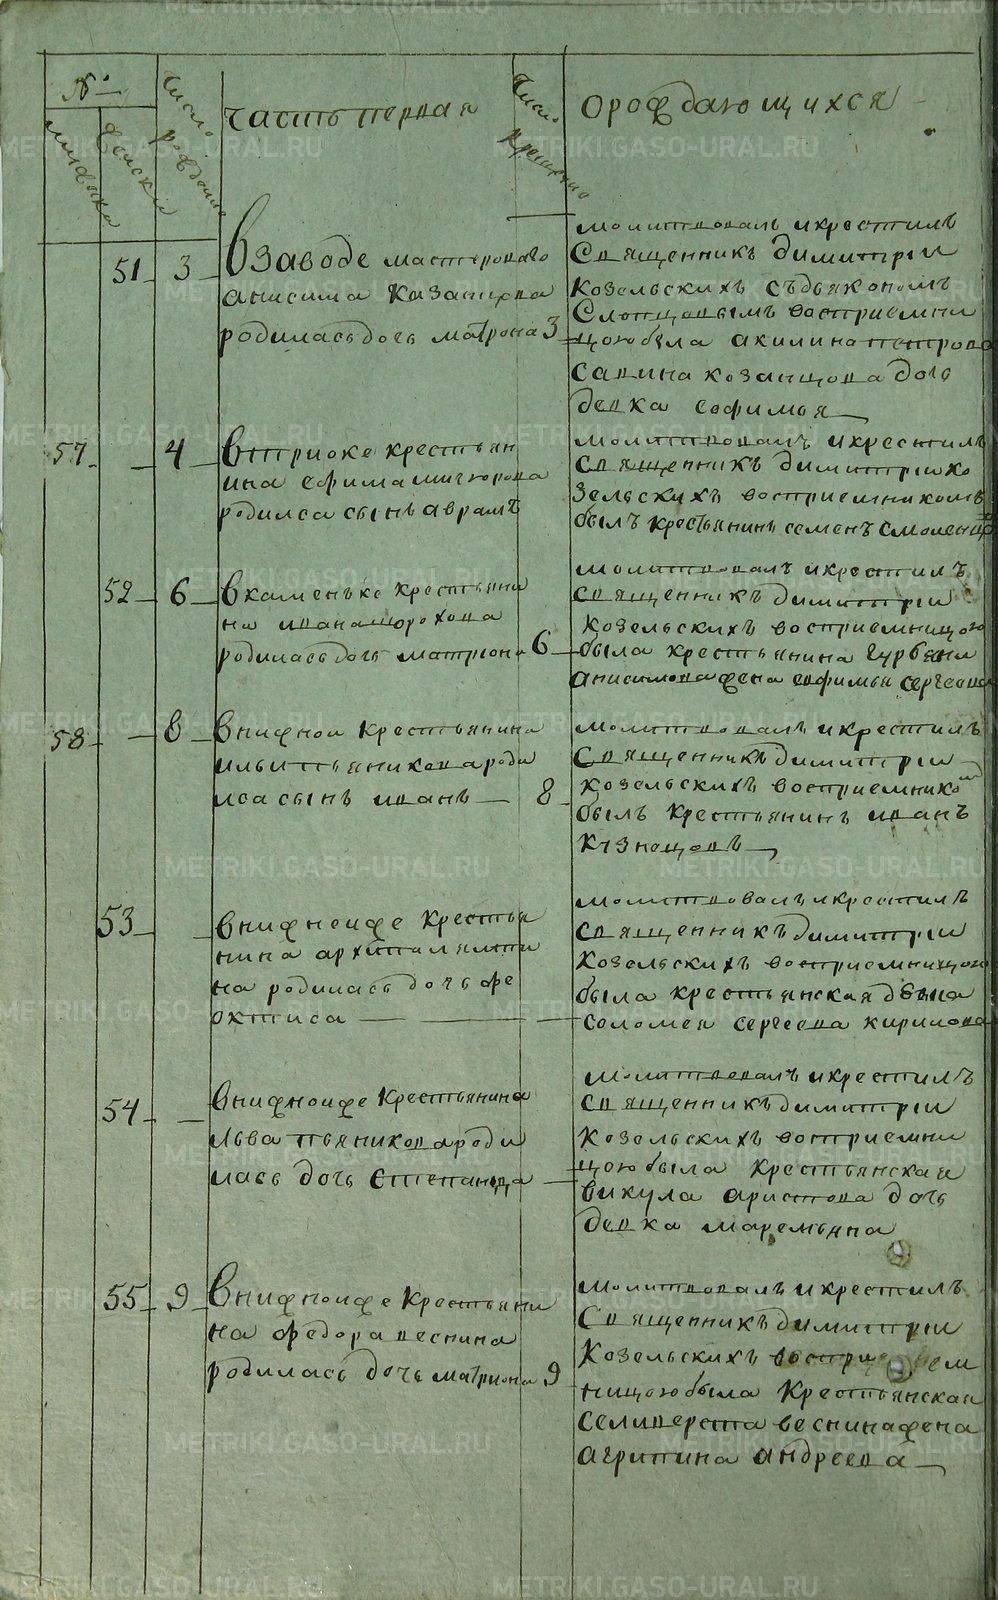 №
мужеска
женска
число рождения
часть первая
число крещения
о рождающихся
51 3 в заводе мастероваго
анисима казанцова
родилась дочь матрона 3
молитвовалъ и крестилъ
священникъ димитрий
козельскихъ съ дьякономъ
словцовымъ восприемни
цою была акилина петрова
савина козанцова дочь
девка ефимья
57 4 в триоке крестьян
ина ефима мигорова
родился сынъ аврамъ
молитвовалъ и крестилъ
священникъ димитрий ко
зельскихъ восприемникомъ
былъ крестьянинъ семенъ
52 6 в каменьке крестьяни
на ивана шорохова
родилась дочь матриона 6
молитвовалъ и крестилъ
священникъ димитрий
козельскихъ восприемницою
была крестьянина
анисимова жена ефимья сергеева
58 8 в нижной крестьянина
ильи пьяникова роди
лса сынъ иванъ 8
молитвовалъ и крестилъ
священникъ димитрий
козельскихъ восприемником
былъ крестьянинъ иванъ
кузнецовъ
53 в нижнеи же крестья
нина архипа лямпи
на родилась дочь фе
октиса
молитвовалъ и крестилъ
священникъ димитрий
козельскихъ восприемницою
была крестьянская девка
соломея сергеева кирилова
54 в нижнои же крестьянина
льва пьяникова роди
лась дочь степанида
молитвовалъ и крестилъ
священникъ димитрий
козельскихъ восприемни
цою была крестьянская
викула аристова дочь
девка маремьяна
55 9 в нижнои же крестьяни
на федора веснина
родилась дочь матриона 9
молитвовалъ и крестилъ
священникъ димитрий
козельскихъ восприем
ницою была крестьянская
селиверста веснина жена
агрипина андреева
METRIKI.GASO-URAL.RU